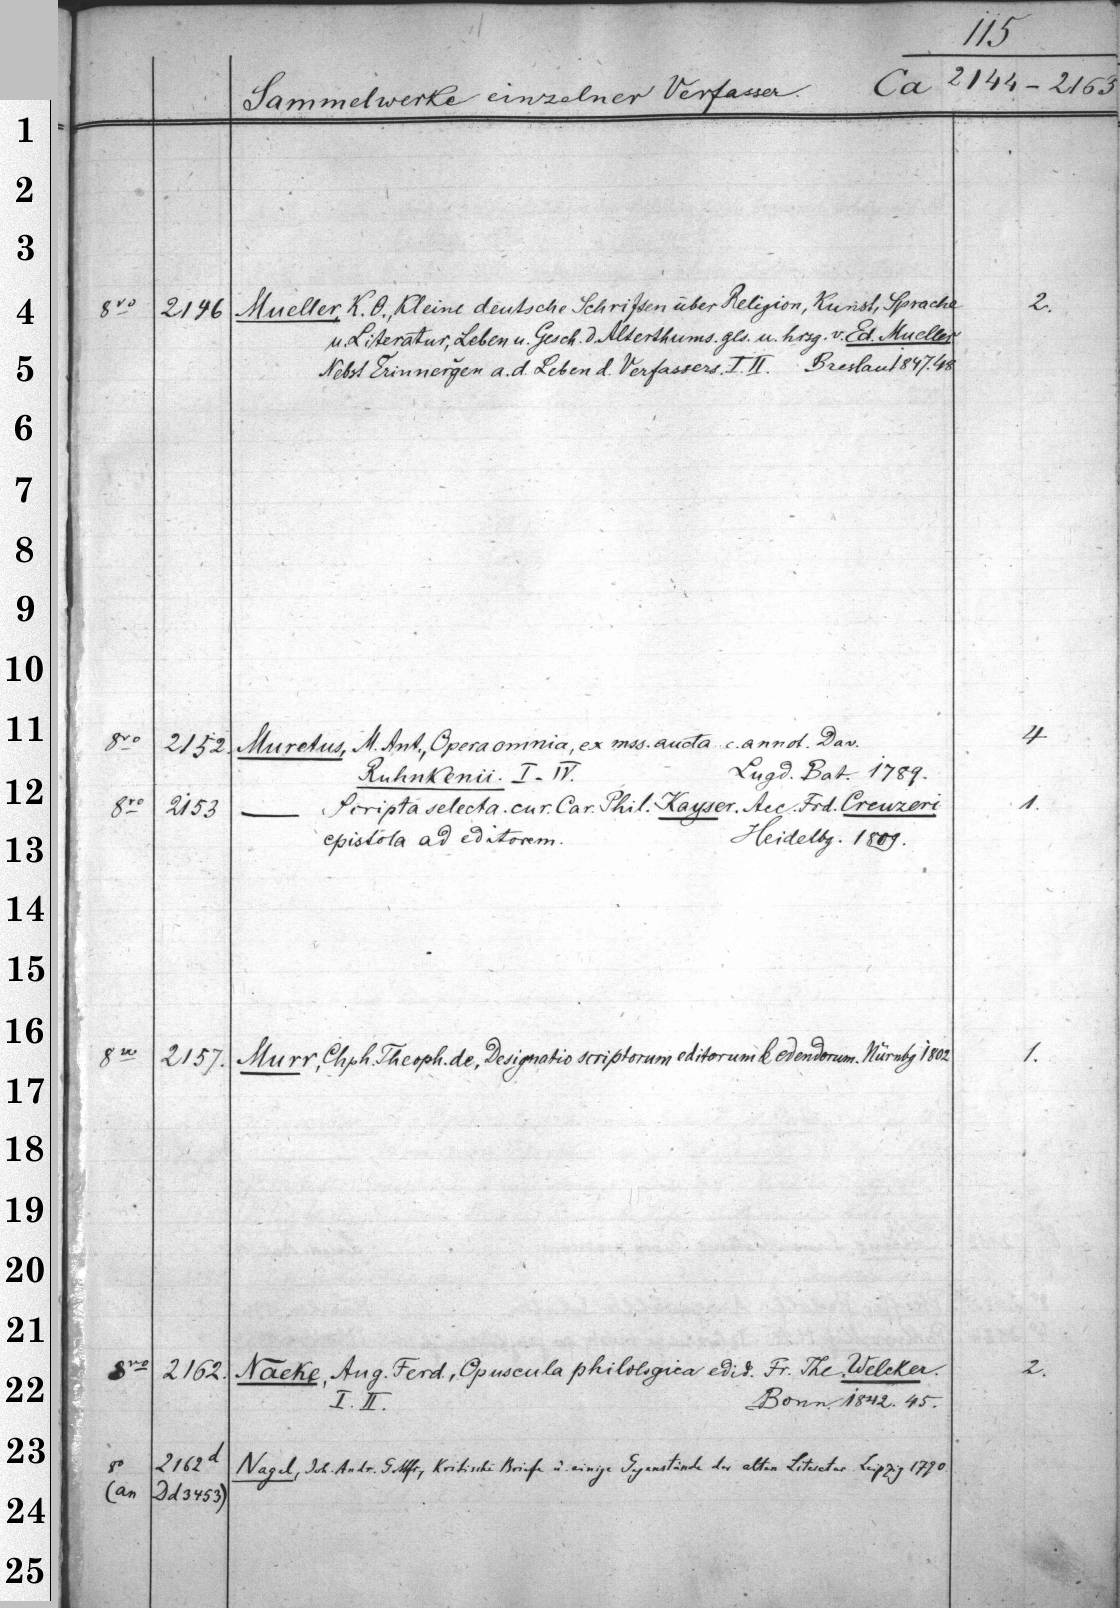 115
Sammelwerke einzelner Verfasser. Ca 2144 - 2163
1
2
3
4
5
6
7
8
9
10
11
12
13
14
15
16
17
18
19
20
21
22
23
24
25
8vo 2146 Mueller, K. O., Kleine deutsche Schriften über Religion, Kunst, Sprache 2.
u. Literatur, Leben u. Gesch. d. Alterthums. gls. u. hrsg. v. Ed. Mueller
Nebst Erinnergen a. d. Leben d. Verfassers. I. II. Breslau 1847.48
8vo 2152. Muretus, M. Ant., Opera omnia, ex mss. aucta c. annot. Dav. 4
Ruhnkenii. I - IV. Lugd. Bat. 1789.
8vo 2153 — Scripta selecta. cur. Car. Phil. Kayser. Acc. Frd. Creuzeri 1.
epistola ad editorem. Heidelbg. 1809.
8vo 2157. Murr, Chph. Theoph. de, Designatio scriptorum editorum & edendorum. Nürnbg 1802 1.
8vo 2162. Naeke, Aug. Ferd., Opuscula philologica edid. Fr. The. Welcker. 2.
I. II. Bonn. 1842. 45.
8o 2162d Nagel, Joh. Andr. Gottfr., Kritische Briefe ü. einige Gegenstände der alten Literatur Leipzig 1790
(an Dd 3453)